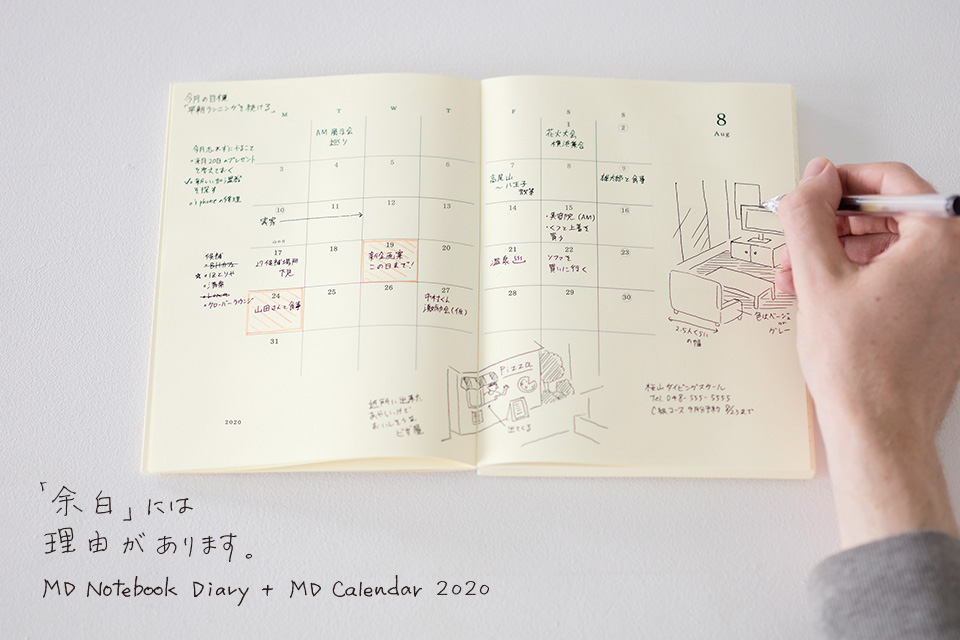 今月の目標
「早朝ランニングを続ける」
M T W T F S S
8
Aug
AM 展示会
巡り
1
花火大会
横浜集合
2
今月末までにやること
・来月20日のプレゼント
を考えておく
✓・新しい加湿器
を探す
・iphoneの修理
3 4 5 6 7 8 9
高尾山
〜八王子
散策
雄介邸と食事
10 11 12 13 14 15 16
実家
・美容院(AM)
・くつと上着を
買う
17 18 19 20 21 22 23
候補
★・ほとりや
・清泉
・クローバーラウンジ
27候補場所
下見
新企画案
この日まで!
温泉
ソファを
買いに行く
24 25 26 27 28 29 30
山田さんと食事
中村くん
送別会(仮)
31
2.5人くらい
の幅
色はベージュ
or
グレー
Pizza
近所に出来た
あやしいけど
おいしそうな
ピザ屋
出てくる
桜山ダイビングスクール
Tel 048-555-5555
2020
「余白」には
理由があります。
MD Notebook Diary + MD Calendar 2020